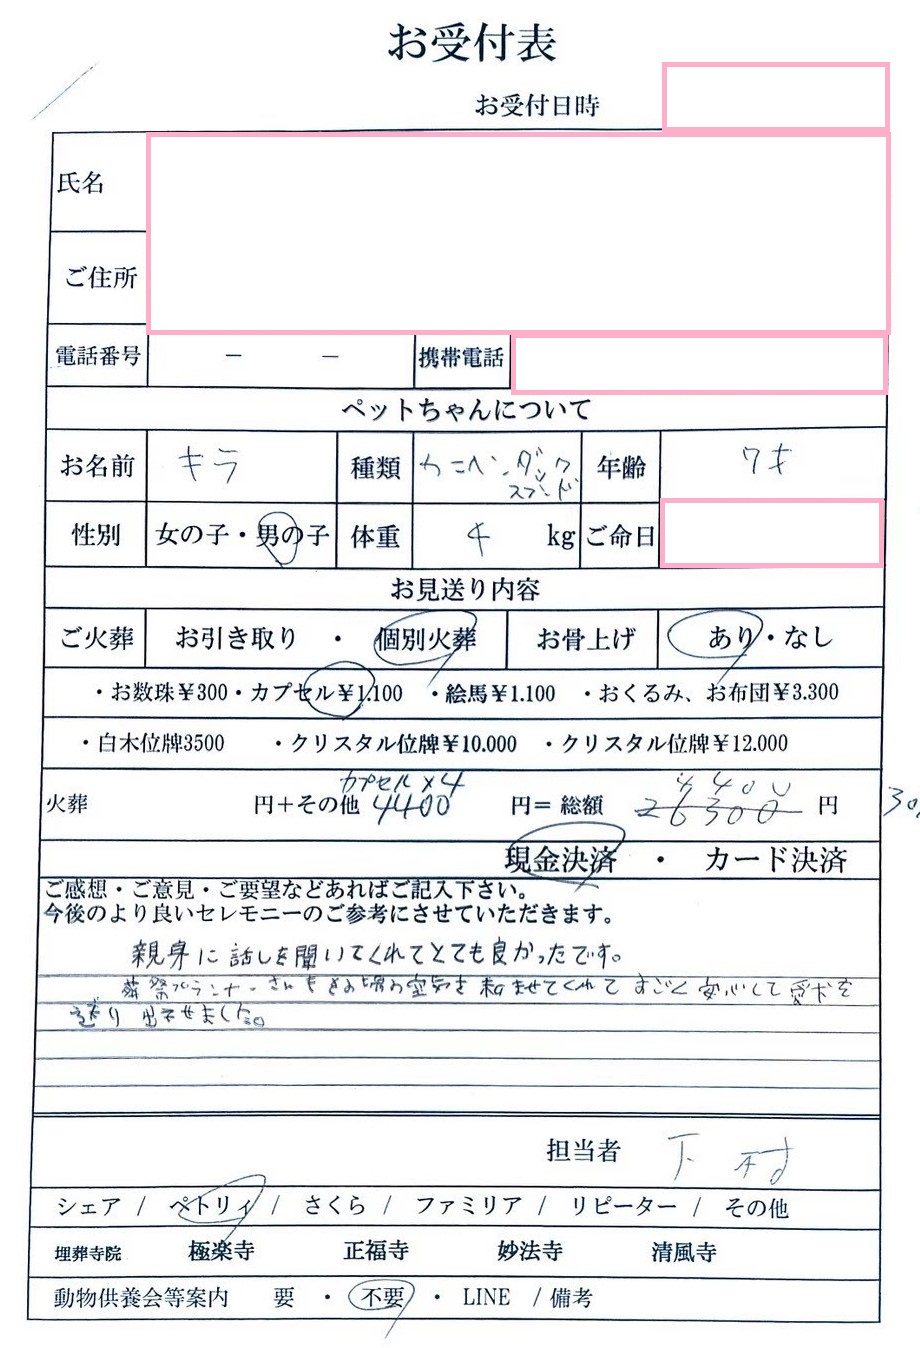 お受付表
お受付日時
氏名
ご住所
電話番号 － － 携帯電話
ペットちゃんについて
お名前 キラ 種類 年齢 7才
性別 女の子・男の子 体重 4 kg ご命日
お見送り内容
ご火葬 お引き取り ・ 個別火葬 お骨上げ あり・なし
・お数珠￥300・カプセル￥1.100 ・絵馬￥1.100 ・おくるみ、お布団￥3.300
・白木位牌3500 ・クリスタル位牌￥10.000 ・クリスタル位牌￥12.000
カプセル×4 4400
火葬 円＋その他 4400 円＝ 総額 26300 円 30,
現金決済 ・ カード決済
ご感想・ご意見・ご要望などあればご記入下さい。
今後のより良いセレモニーのご参考にさせていただきます。
親身に話しを聞いてくれてとても良かったです。
葬祭プランナーさんも 空気を和ませてくれてすごく安心して愛犬を
送り出せました。
担当者 下村
シェア / ペトリィ / さくら / ファミリア / リピーター / その他
埋葬寺院 極楽寺 正福寺 妙法寺 清風寺
動物供養会等案内 要 ・ 不要 ・ LINE / 備考